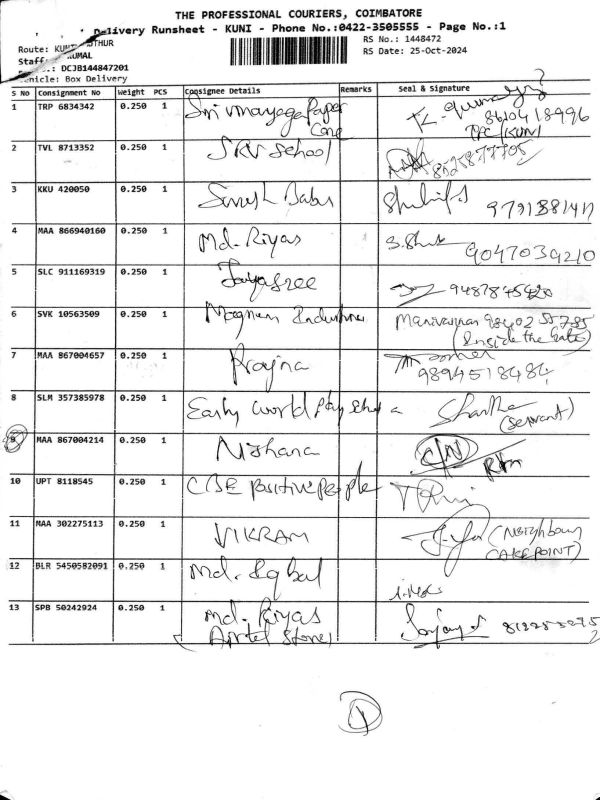 THE PROFESSIONAL COURIERS, COIMBATORE
Delivery Runsheet - KUNI - Phone No.:0422-3505555 - Page No.:1
RS No.: 1448472
Route: KUNI
RS Date: 25-Oct-2024
DCJB144847201
Vehicle: Box Delivery
S No Consignment No Weight PCS Consignee Details Remarks Seal & Signature
1 TRP 6834342 0.250 1 Sri Vinayaga Paper
Cone 8610418996
2 TVL 8713352 0.250 1 SKV School 8525877705
3 KKU 420050 0.250 1 Suresh Babu
4 MAA 866940160 0.250 1 Md. Riyas 9047039210
5 SLC 911169319 0.250 1 Jayasree 9487845420
6 SVK 10563509 0.250 1 Magnum Industries Manivannan 98402 55785
(Inside the Gate)
7 MAA 867004657 0.250 1 Prajna
9894518484
8 SLM 357385978 0.250 1 Early World Play School
(Servant)
9 MAA 867004214 0.250 1 Nishana C/N
10 UPT 8118545 0.250 1 CBE Positive People
11 MAA 302275113 0.250 1 VIKRAM (Neighbour
CAKE POINT)
12 BLR 5450582091 0.250 1 Md. Iqbal
13 SPB 50242924 0.250 1 Md. Riyas
(Airtel Stores) Sanjay.S
1